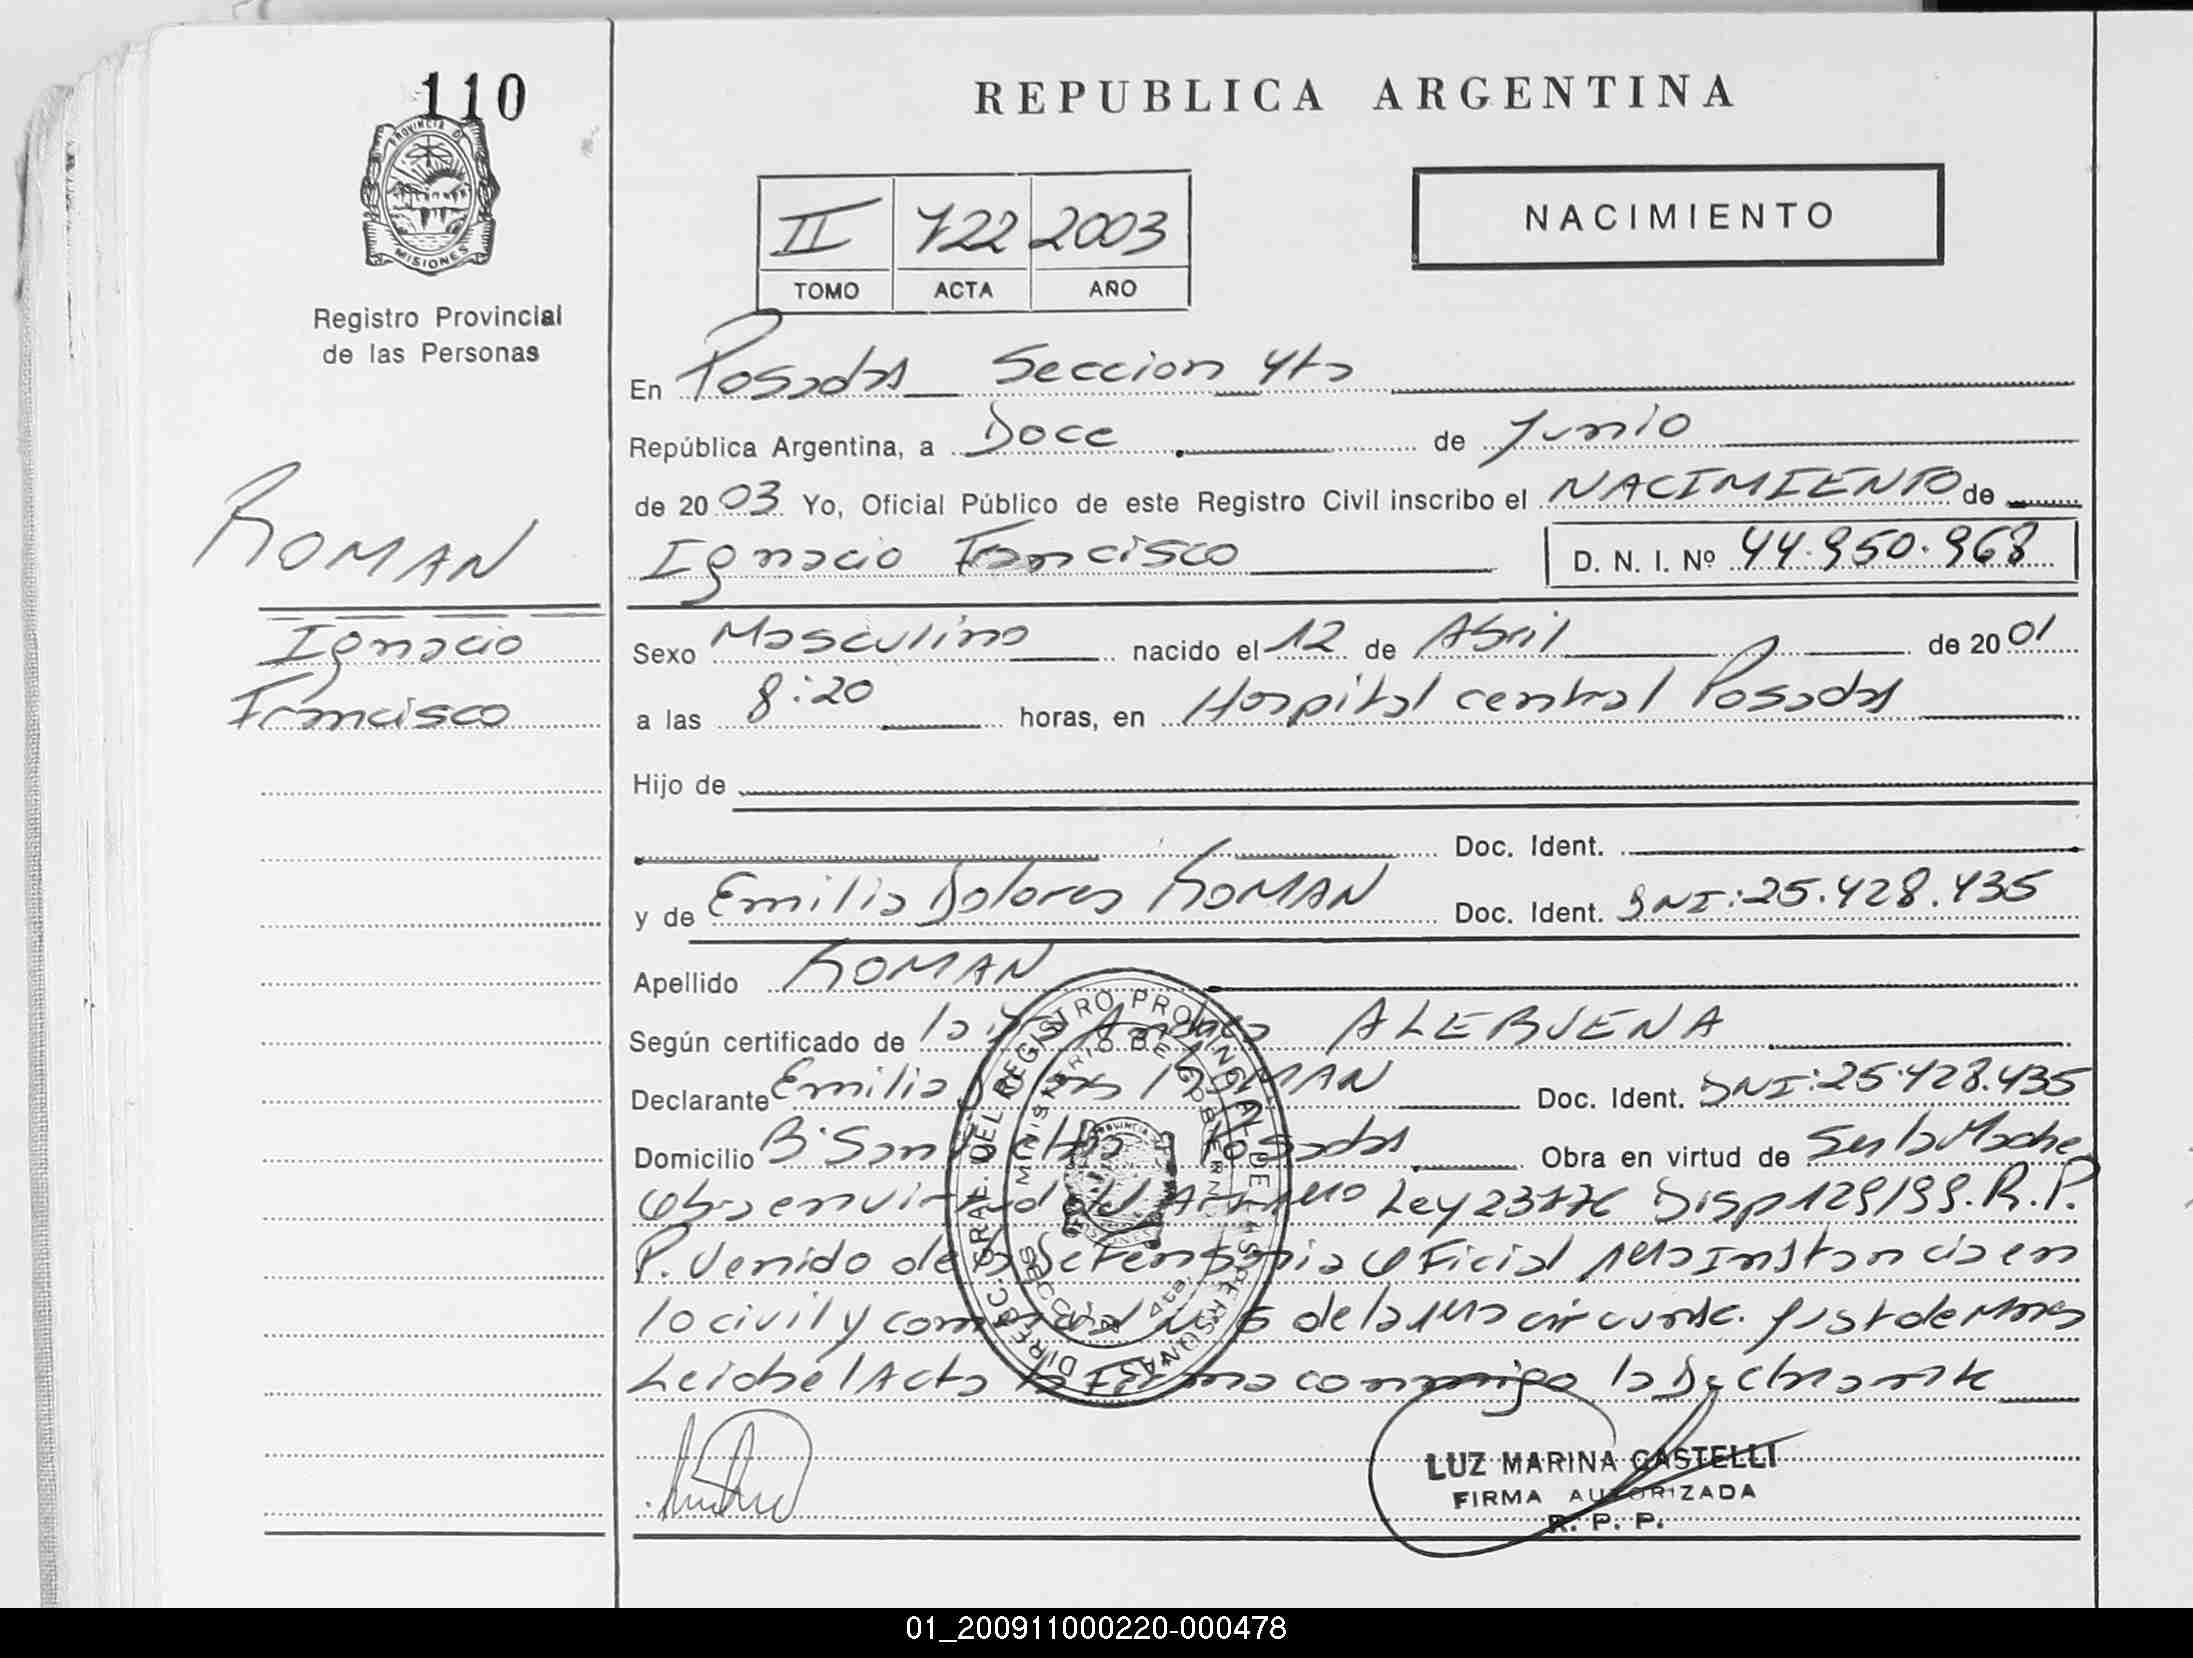 110
REPUBLICA ARGENTINA
PROVINCIA D
MISIONES
Registro Provincial
de las Personas
II 722 2003
TOMO ACTA AÑO
NACIMIENTO
En Posadas Seccion 4ta
República Argentina, a Doce de Junio
de 2003 Yo, Oficial Público de este Registro Civil inscribo el NACIMIENTO de
Ignacio Francisco D. N. I. Nº 44.950.968
ROMAN
Ignacio
Francisco
Sexo Masculino nacido el 12 de Abril de 2001
a las 8:20 horas, en Hospital central Posadas
Hijo de
Doc. Ident.
y de Emilia Dolores ROMAN Doc. Ident. DNI:25.428.435
Apellido ROMAN
Según certificado de la ALEBUENA
Declarante Emilia ROMAN Doc. Ident. DNI:25.428.435
Domicilio B° San Posadas Obra en virtud de Ser la Madre
Obra en virtud del Art 1110 Ley 23776 Disp 129/99. R.P.
P. Venido de la Defensoria Oficial 1era Instancia en
lo civil y comercial de la 1era circunsc. Just de Mnes
Leida el Acta la Firma conmigo la Declarante
DIRECC. GRAL. DEL REGISTRO PROVINCIAL DE LAS PERSONAS
MINISTERIO DE GOBIERNO
SECCION 4ta
LUZ MARINA CASTELLI
FIRMA AUTORIZADA
R. P. P.
01_200911000220-000478